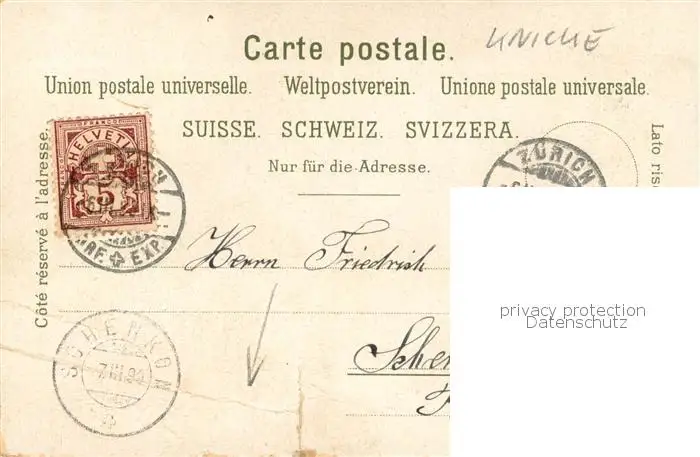 Carte postale.
Union postale universelle. Weltpostverein. Unione postale universale.
SUISSE. SCHWEIZ. SVIZZERA.
Nur für die Adresse.
Côté réservé à l'adresse.
Lato ris
FRANCO
HELVETIA
5
BRF. EXP.
ZÜRICH
Herrn Friedrich
Schen
SCHENKON
7.III.94
privacy protection
Datenschutz